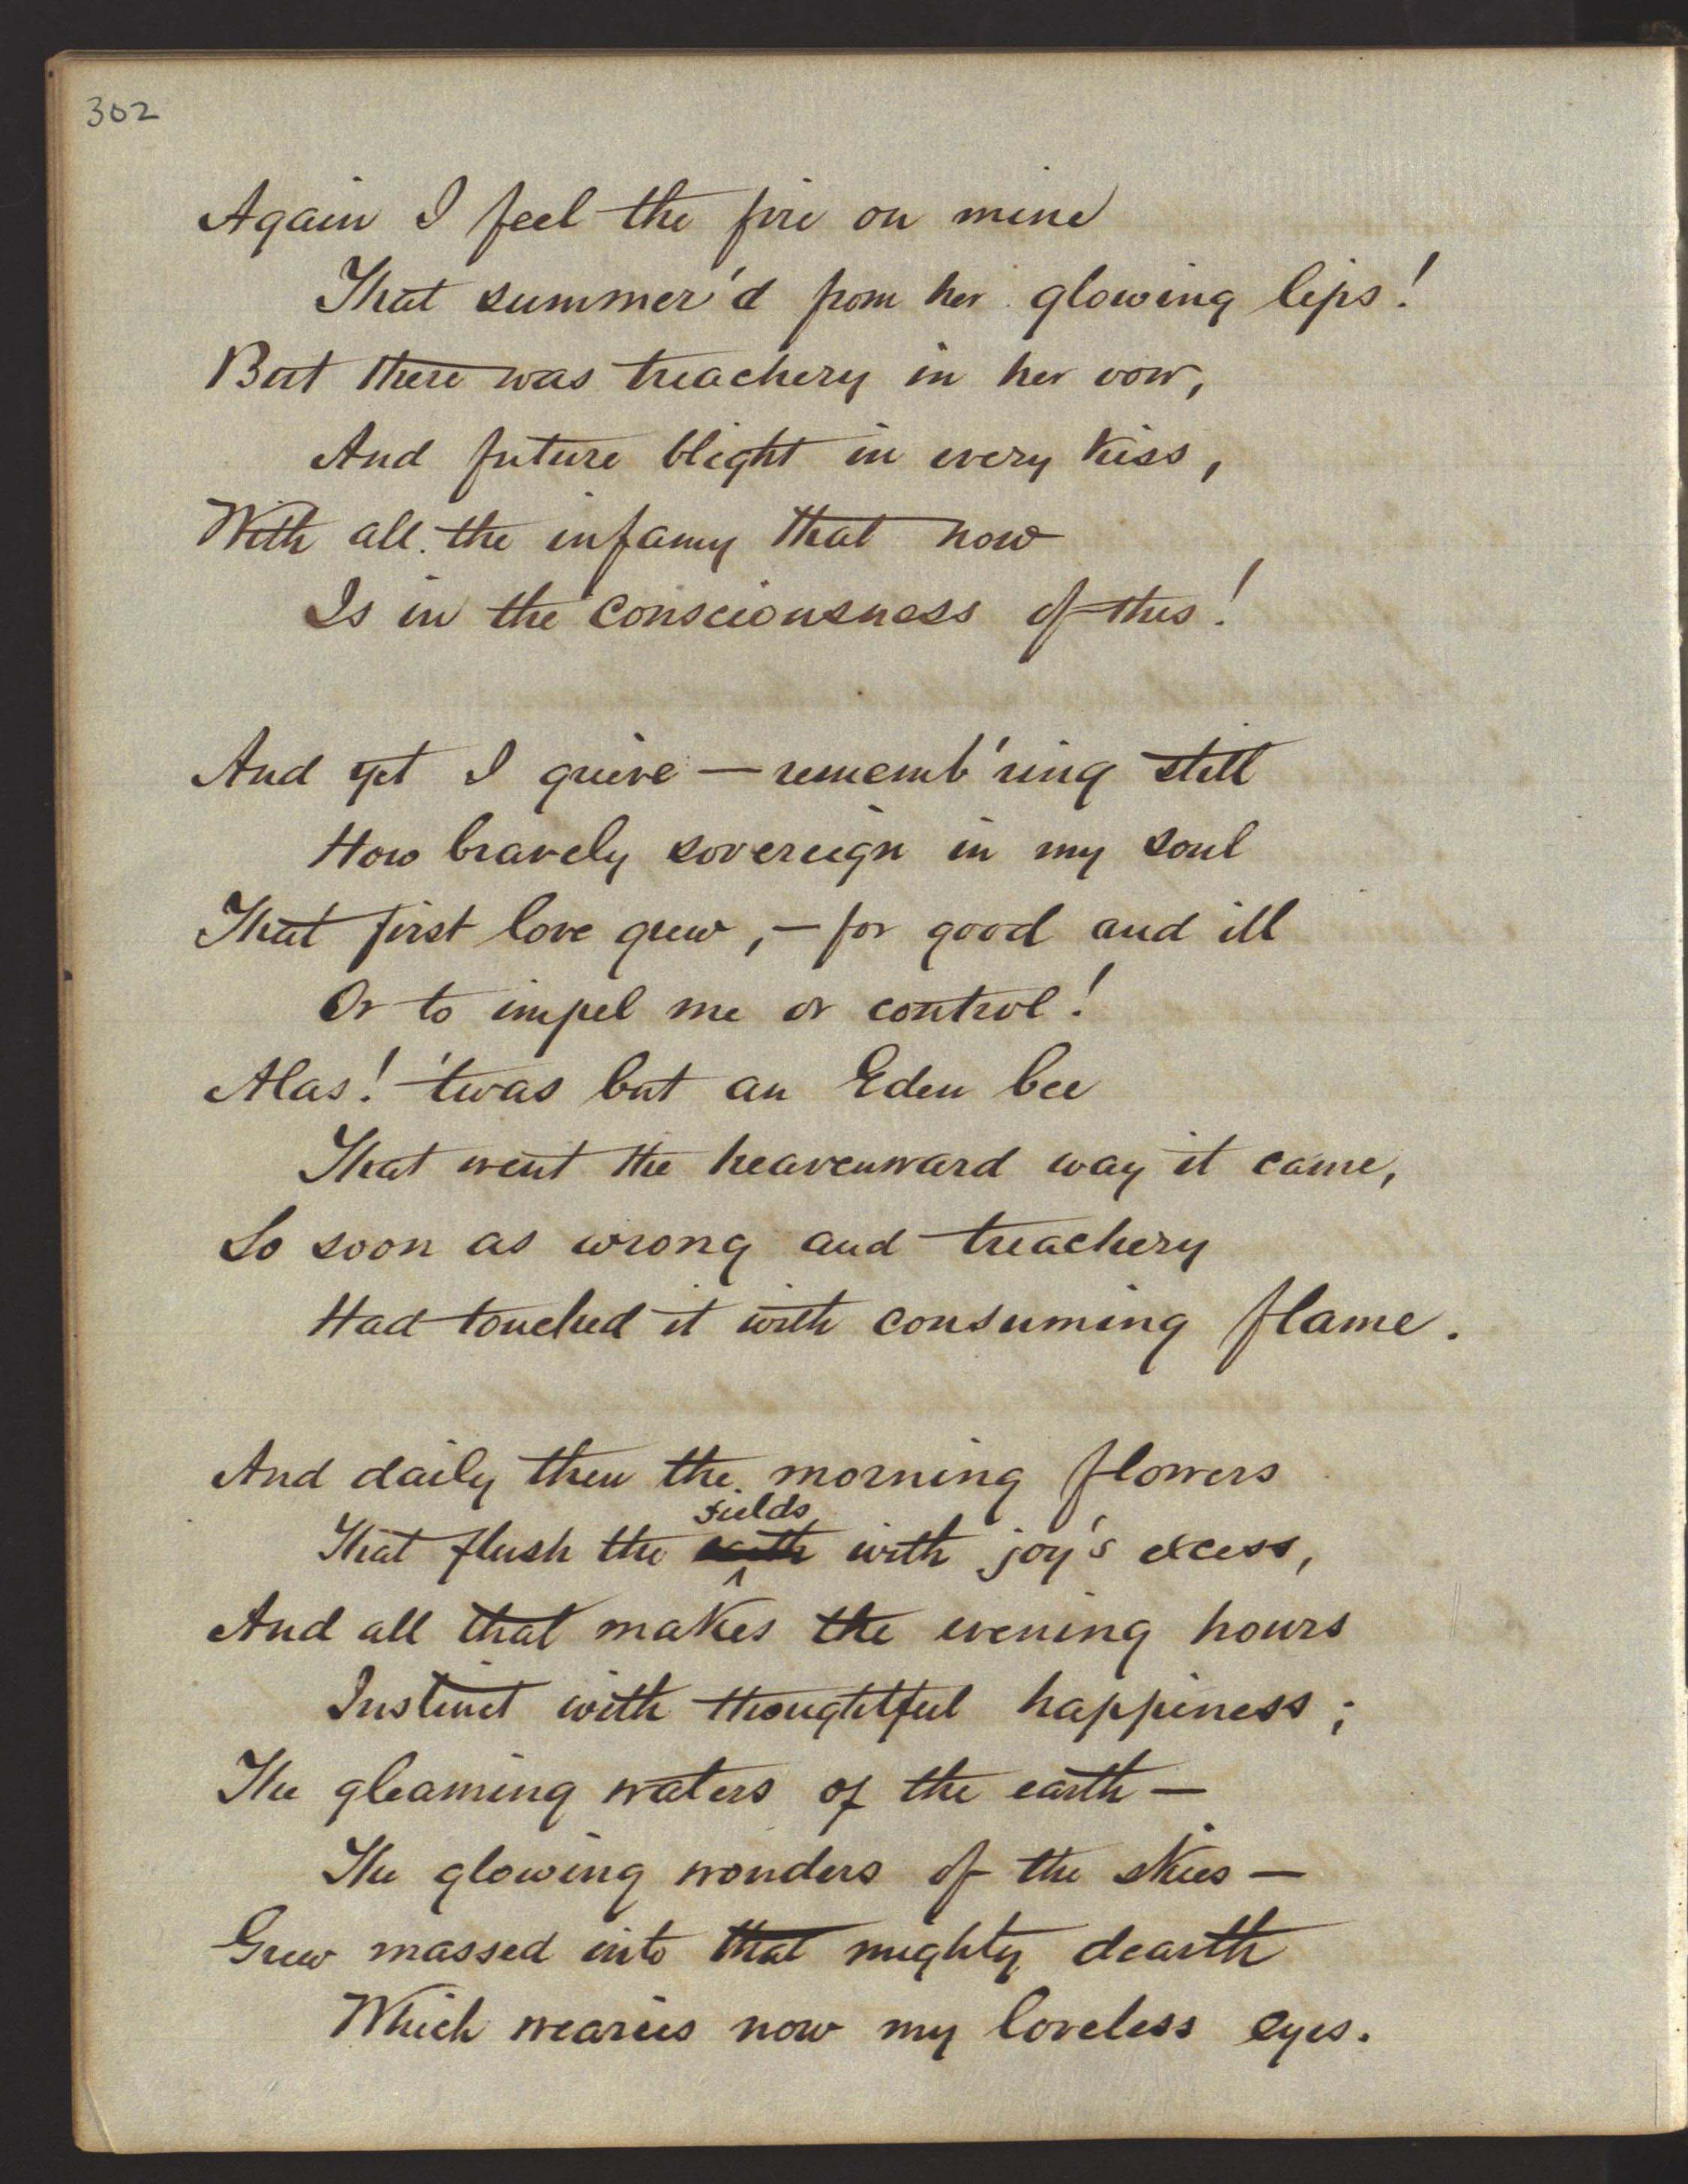 302
Again I feel the fire on mine
That summer'd from her glowing lips!
But there was treachery in her vow,
And future blight in every kiss,
With all the infamy that now
Is in the consciousness of this!
And yet I grieve — rememb'ring still
How bravely sovereign in my soul
That first love grew, — for good and ill
Or to impel me or control!
Alas! 'twas but an Eden bee
That went the heavenward way it came,
So soon as wrong and treachery
Had touched it with consuming flame.
And daily then the morning flowers
fields
That flush the earth with joy's excess,
And all that makes the evening hours
Instinct with thoughtful happiness;
The gleaming waters of the earth —
The glowing wonders of the skies —
Grew massed into that mighty dearth
Which wearies now my loveless eyes.